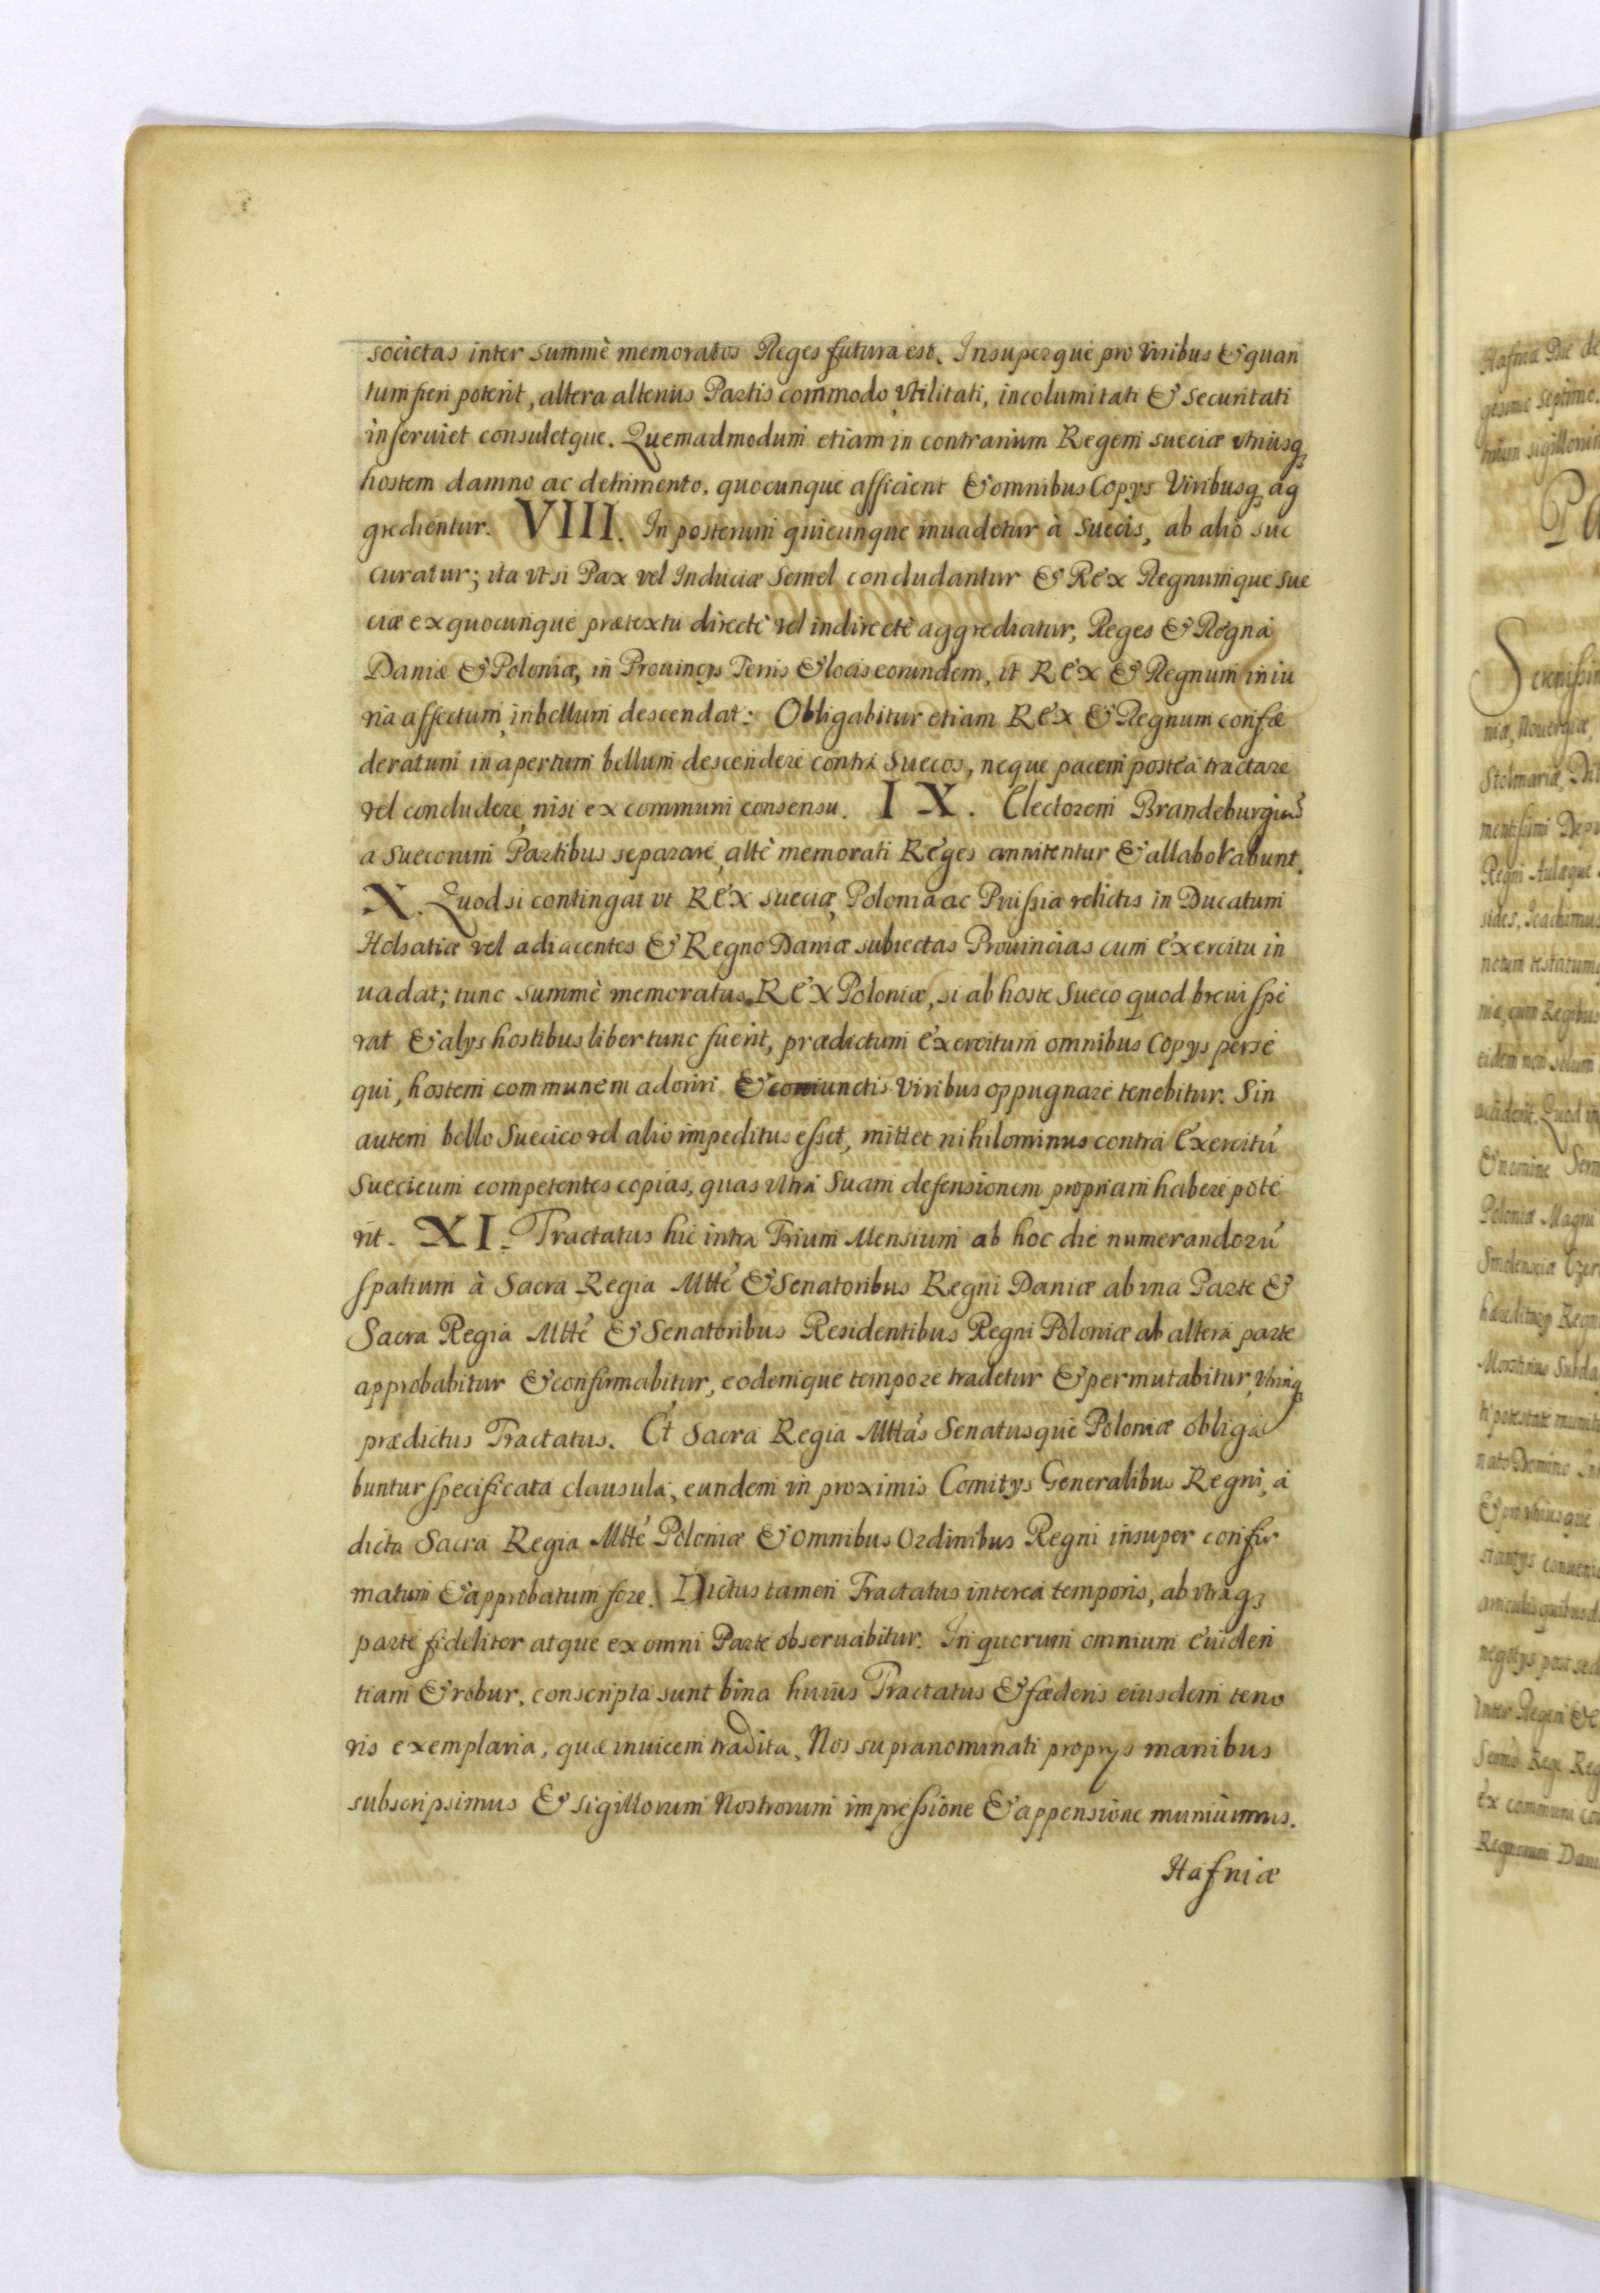 societas inter summè memoratos Reges futura est. Insuperque pro viribus & quan
tum fieri poterit, altera alterius Partis commodo, vtilitati, incolumitati & securitati
inseruiet consuletque. Quemadmodum etiam in contrarium Regem sueciæ vtriusq3
hostem damno ac detrimento, quocunque afficient & omnibus Copys Viribusq3 ag
gredientur. VIII. In posterum quicunque inuadetur à Suecis, ab alio suc
curatur; ita vt si Pax vel Induciæ Semel concludantur & Rex Regnumque Sue
ciæ ex quocunque prætextu directè vel indirectè aggrediatur, Reges & Regna
Daniæ & Poloniæ, in Prouincys Terris & locis eorundem, vt Rex & Regnum iniu
ria affectum, in bellum descendat: Obligabitur etiam Rex & Regnum confæ
deratum in apertum bellum descendere contra Suecos, neque pacem postea tractare
vel concludere, nisi ex communi consensu. IX. Electorem Brandeburgicũ
a Suecorum Partibus separare, altè memorati Reges annitentur & allaborabunt.
X. Quod si contingat vt Rex Sueciæ, Polonia ac Prussia relictis in Ducatum
Holsatiæ vel adiacentes & Regno Daniæ subiectas Prouincias cum exercitu in
uadat; tunc summè memoratus Rex Poloniæ, si ab hoste Sueco quod breui spe
rat & alys hostibus liber tunc fuerit, prædictum Exercitum omnibus Copys perse
qui, hostem communem adoriri & coniunctis Viribus oppugnare tenebitur. Sin
autem bello Suecico vel alio impeditus esset, mittet nihilominus contra Exercitũ
Suecicum competentes copias, quas vltra Suam defensionem propriam habere pote
rit. XI. Tractatus hic intra Trium Mensium ab hoc die numerandorũ
spatium à Sacra Regia Mtte & Senatoribus Regni Daniæ ab vna Parte &
Sacra Regia Mtte & Senatoribus Residentibus Regni Poloniæ ab altera parte
approbabitur & confirmabitur, eodemque tempore tradetur & permutabitur, vtrinq3
prædictus Tractatus. Et Sacra Regia Mttas Senatusque Poloniæ obliga
buntur specificata clausula, eundem in proximis Comitys Generalibus Regni, à
dicta Sacra Regia Mtte Poloniæ & Omnibus Ordinibus Regni insuper confir
matum & approbatum fore. Dictus tamen Tractatus interea temporis, ab vtraq3
parte fideliter atque ex omni Parte obseruabitur. In quorum omnium euiden
tiam & robur, conscripta sunt bina huius Tractatus & fæderis eiusdem teno
ris exemplaria, quæ inuicem tradita, Nos supranominati proprys manibus
subscripsimus & sigillorum Nostrorum impressione & appensione muniuimus.
Hafniæ